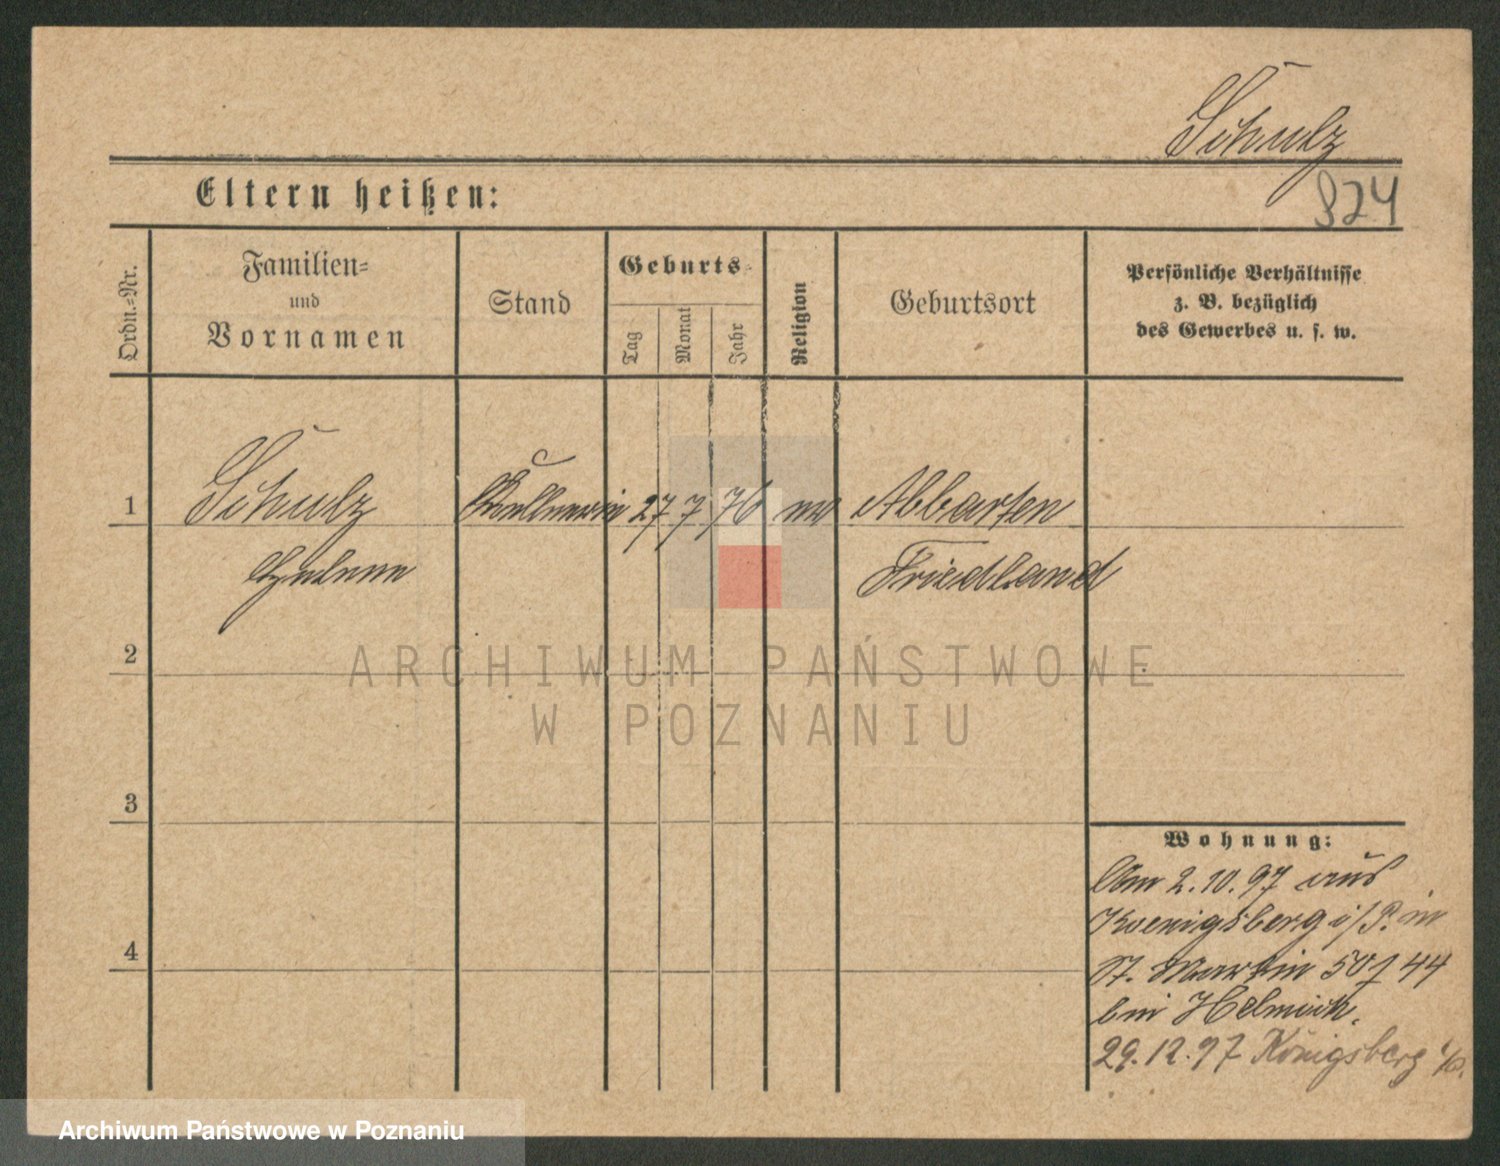 Schulz
824
Eltern heißen:
Ordn.-Nr.
Familien-
und
Vornamen
Stand
Geburts-
Tag
Monat
Jahr
Religion
Geburtsort
Persönliche Verhältnisse
z. B. bezüglich
des Gewerbes u. s. w.
1
Schulz
Kellnerin
27
7
76
ev
Abbarten
Helene
Friedland
2
ARCHIWUM PAŃSTWOWE
W POZNANIU
3
Wohnung:
Am 2.10.97 aus
Koenigsberg i/P. in
4
St. Martin 50/44
bei
29.12.97 Königsberg i/P.
Archiwum Państwowe w Poznaniu